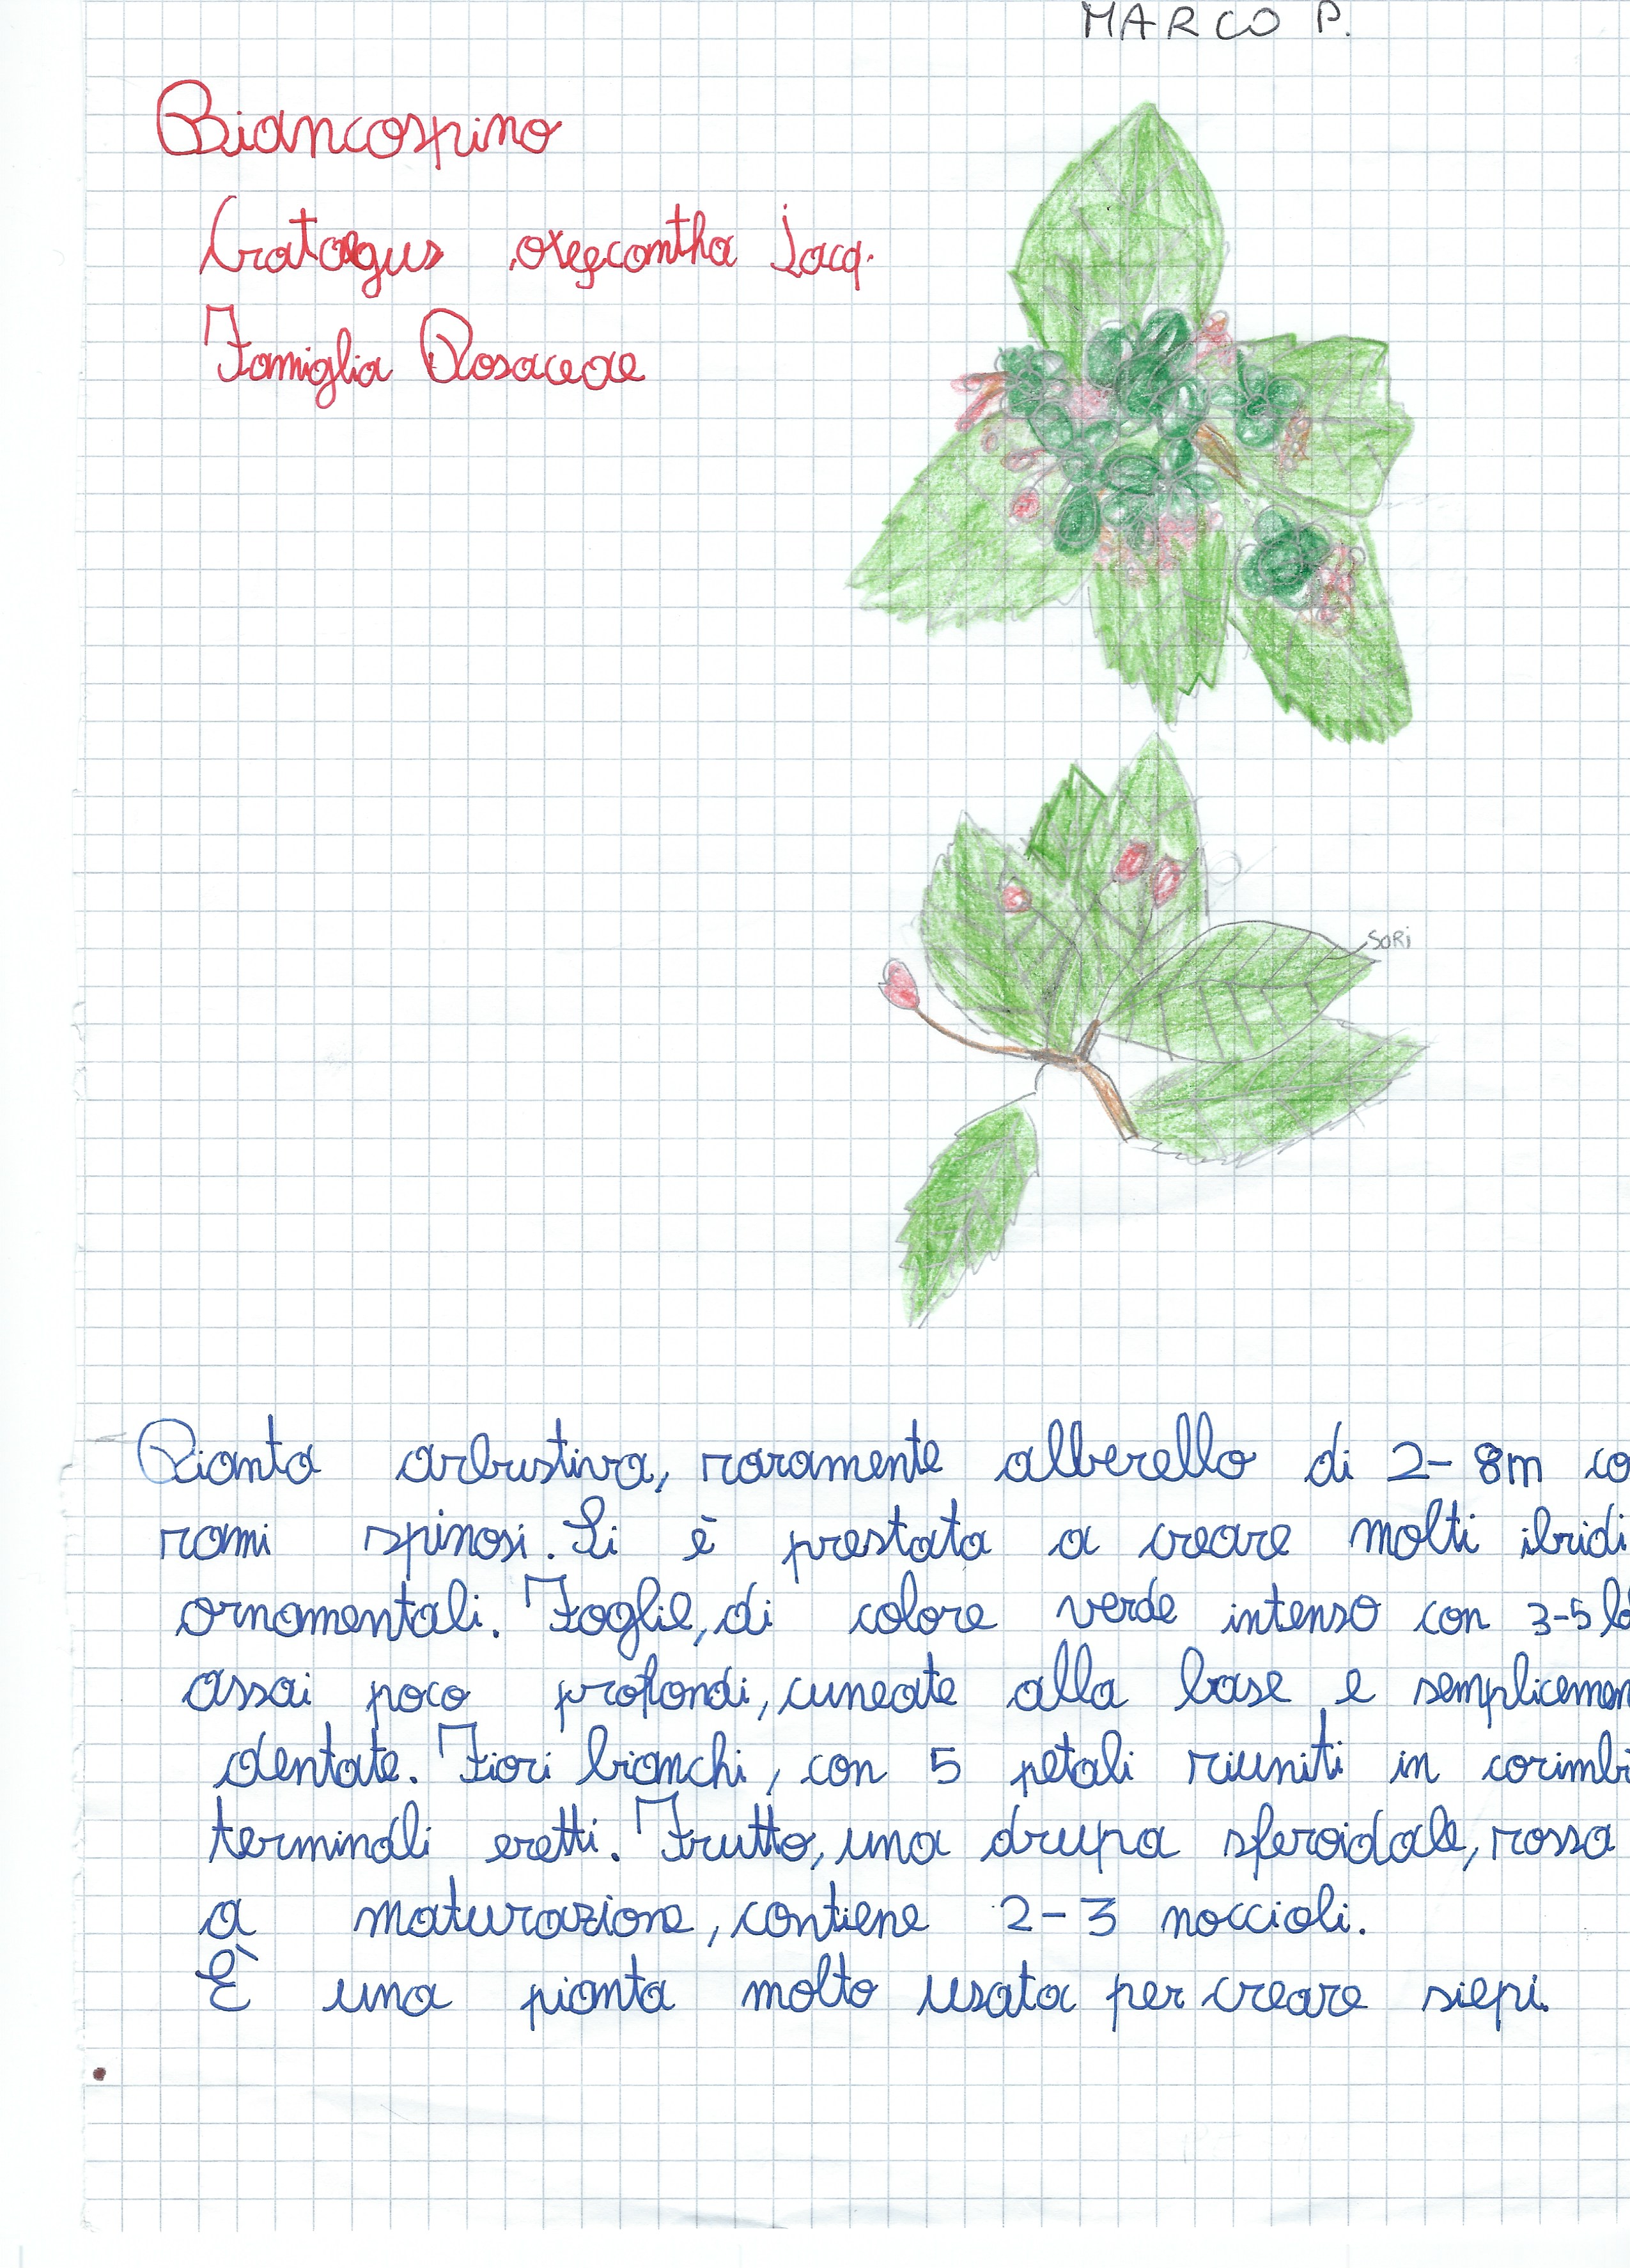 MARCO P.
Biancospino
Crataegus oxyacantha Jacq.
Famiglia Rosaceae
SORI
Pianta arbustiva, raramente alberello di 2-8m co
rami spinosi. Si è prestata a creare molti ibridi
ornamentali. Foglie, di colore verde intenso con 3-5 lo
assai poco profondi, cuneate alla base e semplicemen
dentate. Fiori bianchi, con 5 petali riuniti in corimbi
terminali eretti. Frutto, una drupa sferoidale, rossa
a maturazione, contiene 2-3 noccioli.
È una pianta molto usata per creare siepi.